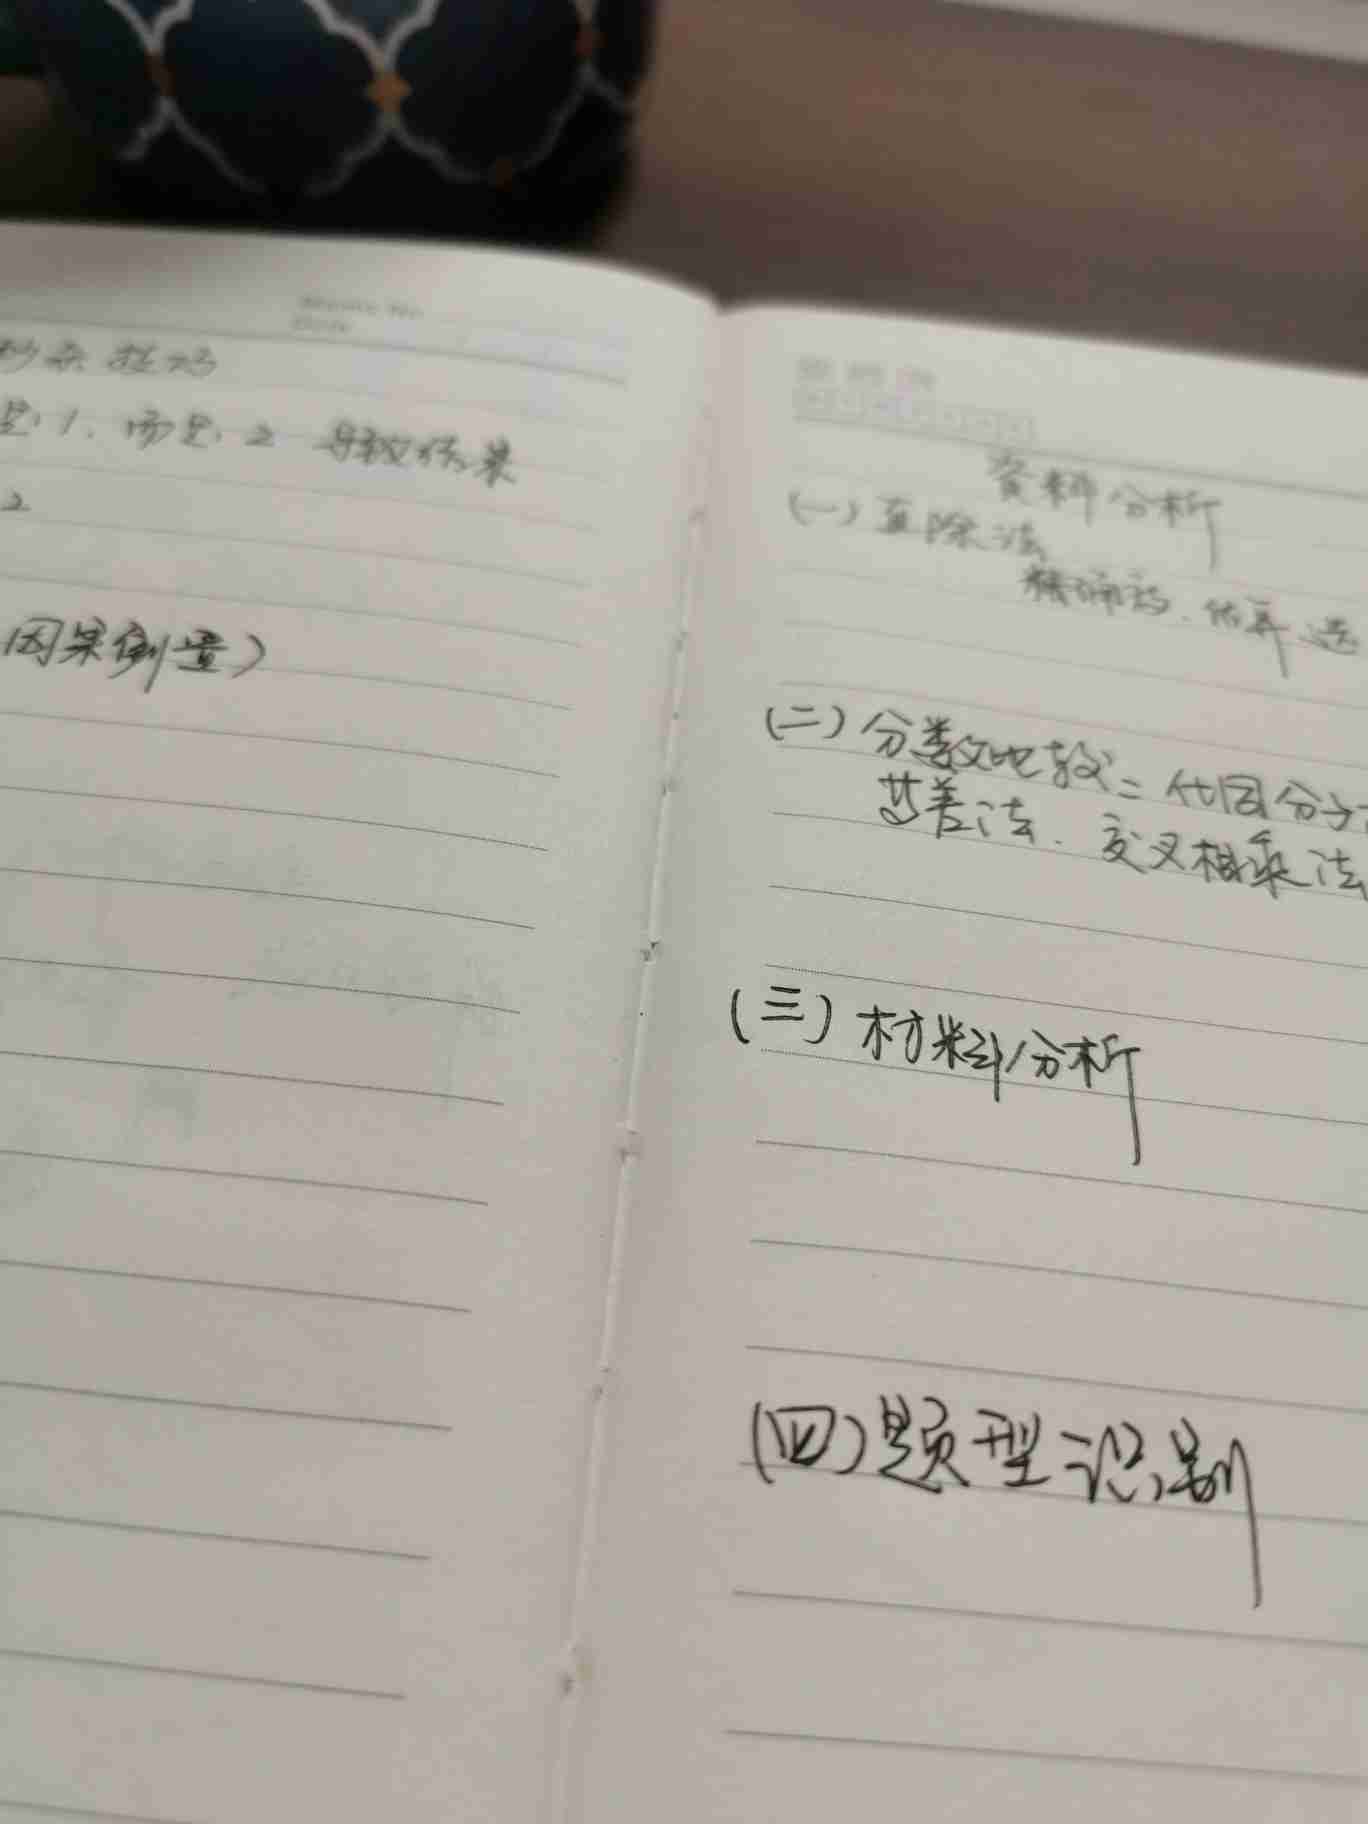 秒杀技巧
是1.而是2 导致结果
2
因果倒置）
资料分析
（一）直除法
精确法.估算选
（二）分数比较：化同分子
差法.交叉相乘法
（三）材料分析
（四）题型识别